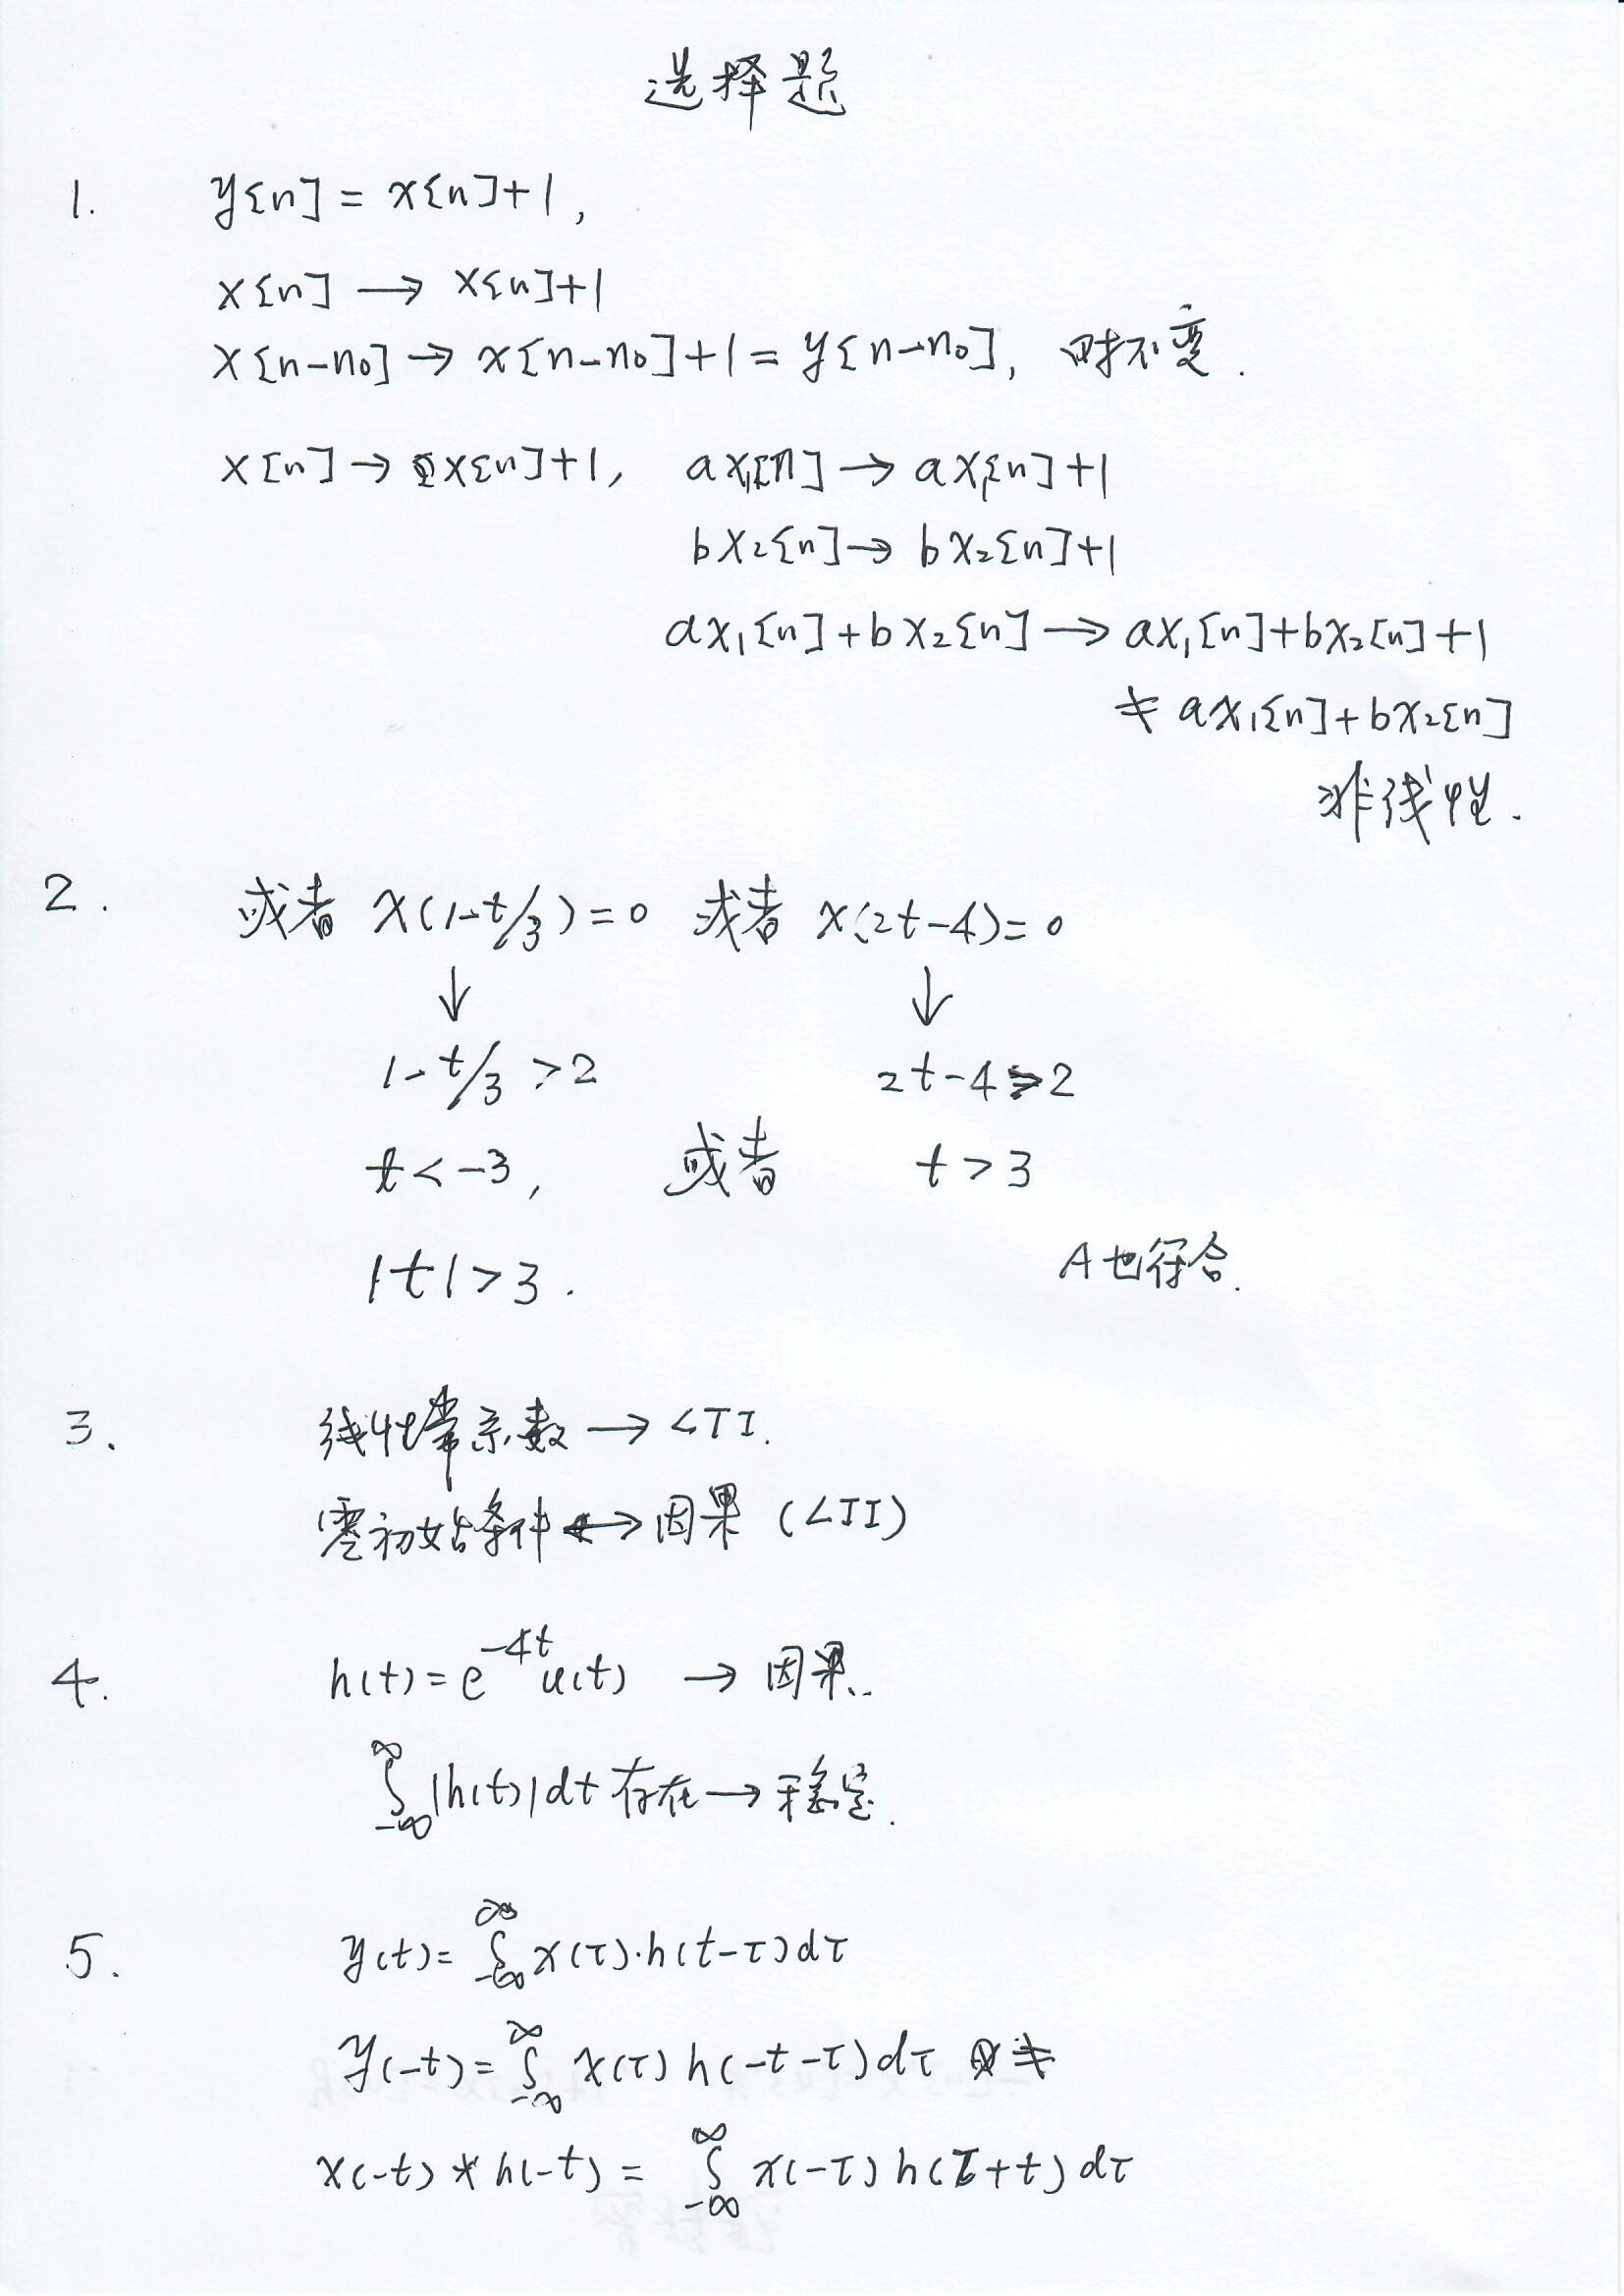 选择题
1. y[n] = x[n]+1,
x[n] → x[n]+1
x[n-n₀] → x[n-n₀]+1 = y[n-n₀], 时不变.
x[n] → x[n]+1, ax₁[n] → ax₁[n]+1
bx₂[n] → bx₂[n]+1
ax₁[n]+bx₂[n] → ax₁[n]+bx₂[n]+1
≠ ax₁[n]+bx₂[n]
非线性.
2. 或者 x(1-t/3)=0 或者 x(2t-4)=0
↓ ↓
1-t/3 >2 2t-4>2
t<-3, 或者 t>3
|t|>3. A也符合.
3. 线性常系数 → LTI.
零初始条件 ↔ 因果 (LTI)
4. h(t)=e^{-4t}u(t) → 因果.
∫_{-∞}^{∞}|h(t)|dt 存在 → 稳定.
5. y(t)= ∫_{-∞}^{∞} x(τ)·h(t-τ)dτ
y(-t)= ∫_{-∞}^{∞} x(τ) h(-t-τ)dτ ≠
x(-t) * h(-t) = ∫_{-∞}^{∞} x(-τ) h(τ+t) dτ